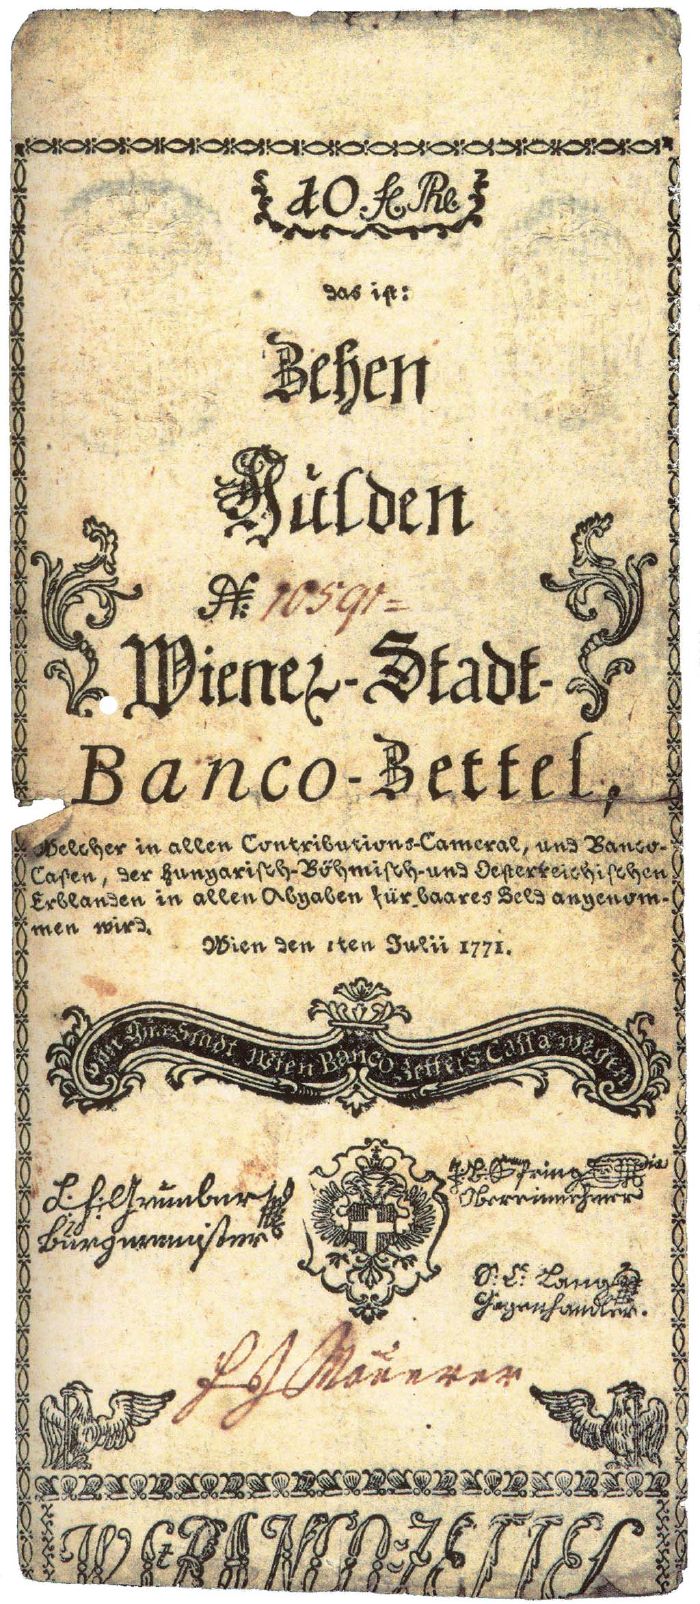 10. fl. Rh.
das ist:
Zehen
Gulden
N: 10591=
Wiener-Stadt-
Banco-Zettel,
Welcher in allen Contributions-Cameral, und Banco-
Caßen, der Hungarisch-Böhmisch-und Oesterreichischen
Erblanden in allen Abgaben für baares Geld angenom-
men wird.
Wien den 1ten Julii 1771.
Von Der Stadt Wien Banco Zettels Cassa wegen
Bürgermeister
Obereinnehmer
Lang
Gegenhandler.
Mäuerer